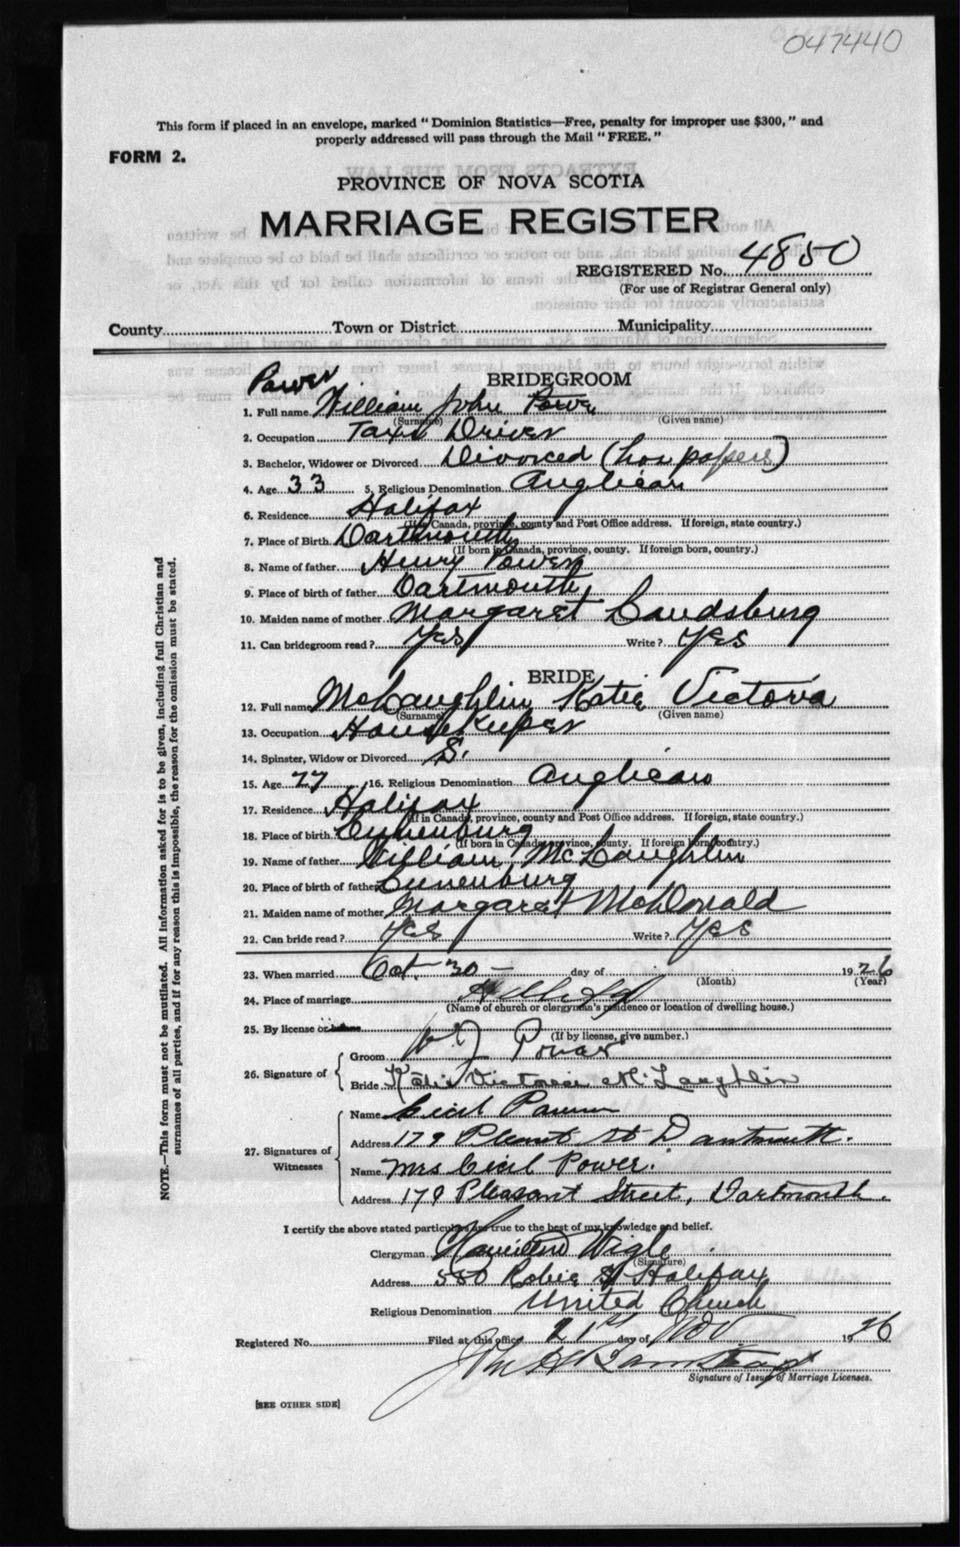 047440
This form if placed in an envelope, marked "Dominion Statistics—Free, penalty for improper use $300," and
properly addressed will pass through the Mail "FREE."
FORM 2.
PROVINCE OF NOVA SCOTIA
MARRIAGE REGISTER
REGISTERED No. 4850
(For use of Registrar General only)
County Town or District Municipality
Power
BRIDEGROOM
1. Full name William John Power
(Surname) (Given name)
2. Occupation Taxi Driver
3. Bachelor, Widower or Divorced Divorced (has papers)
4. Age 33 5. Religious Denomination Anglican
6. Residence Halifax
(If in Canada, province, county and Post Office address. If foreign, state country.)
7. Place of Birth Dartmouth
(If born in Canada, province, county. If foreign born, country.)
8. Name of father Henry Power
9. Place of birth of father Dartmouth
10. Maiden name of mother Margaret
11. Can bridegroom read? Yes Write? Yes
BRIDE
12. Full name McLaughlin Katie Victoria
(Surname) (Given name)
13. Occupation Housekeeper
14. Spinster, Widow or Divorced S.
15. Age 27 16. Religious Denomination Anglican
17. Residence Halifax
(If in Canada, province, county and Post Office address. If foreign, state country.)
18. Place of birth Lunenburg
(If born in Canada, province, county. If foreign born, country.)
19. Name of father William McLaughlin
20. Place of birth of father Lunenburg
21. Maiden name of mother Margaret McDonald
22. Can bride read? Yes Write? Yes
23. When married Oct. 30 - day of 1926
(Month) (Year)
24. Place of marriage Halifax
(Name of church or clergyman's residence or location of dwelling house.)
25. By license or banns
(If by license, give number.)
26. Signature of
Groom W J Power
Bride Katie Victoria McLaughlin
27. Signatures of Witnesses
Name Cecil Power
Address 179 Pleasant St Dartmouth.
Name Mrs Cecil Power.
Address 179 Pleasant Street, Dartmouth.
I certify the above stated particulars are true to the best of my knowledge and belief.
Clergyman Hamilton Wigle
(Signature)
Address 550 Robie St Halifax
Religious Denomination United Church
Registered No. Filed at this office 21st day of Nov 1926
John H
Signature of Issuer of Marriage Licenses.
[SEE OTHER SIDE]
NOTE.—This form must not be mutilated. All information asked for is to be given, including full Christian and
surnames of all parties, and if for any reason this is impossible, the reason for the omission must be stated.